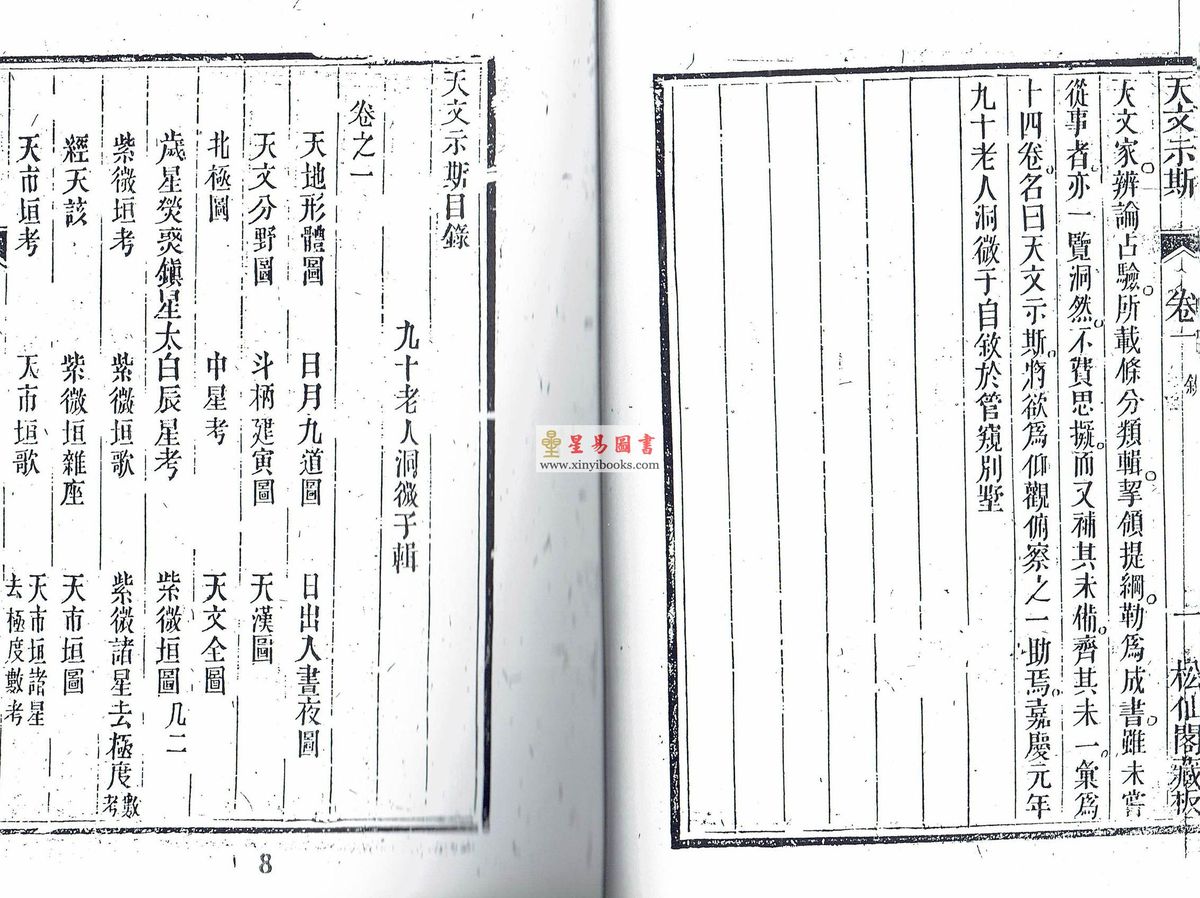 天文示斯
卷一
錄
一
松仙閣藏板
天文家辨論占驗。所載條分類輯。挈領提綱。勒爲成書。雖未嘗
從事者。亦一覽洞然。不費思擬。而又補其未備。齊其未一。彙爲
十四卷。名曰天文示斯。將欲爲仰觀俯察之一助焉。嘉慶元年
九十老人洞微子自敘於管窺別墅
天文示斯目錄
九十老人洞微子輯
卷之一
天地形體圖 日月九道圖 日出入晝夜圖
天文分野圖 斗柄建寅圖 天漢圖
北極圖 中星考 天文全圖
歲星熒惑鎮星太白辰星考 紫微垣圖 凡二
紫微垣考 紫微垣歌 紫微諸星去極度數考
經天該 紫微垣雜座 天市垣圖
天市垣考 天市垣歌 天市垣諸星去極度數考
8
星易圖書
www.xinyibooks.com